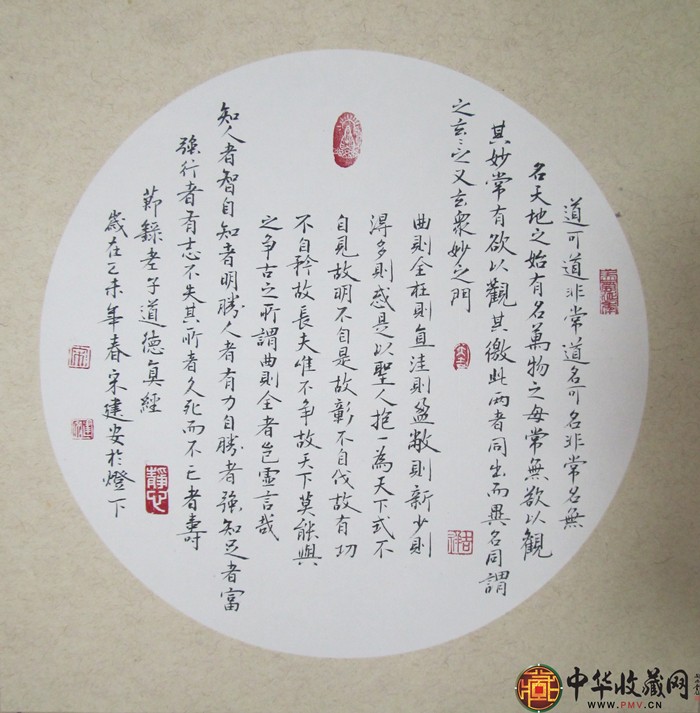 道可道非常道名可名非常名無
名天地之始有名萬物之母常無欲以觀
其妙常有欲以觀其徼此两者同出而異名同謂
之玄玄之又玄衆妙之門
曲則全枉則直洼則盈敝則新少則
得多則惑是以聖人抱一為天下式不
自見故明不自是故彰不自伐故有功
不自矜故長夫唯不争故天下莫能與
之争古之所謂曲則全者豈虛言哉
知人者智自知者明勝人者有力自勝者強知足者富
強行者有志不失其所者久死而不亡者壽
節錄老子道德真經
歲在乙未年春宋建安於燈下
靜心
中华收藏网
www.PMV.CN